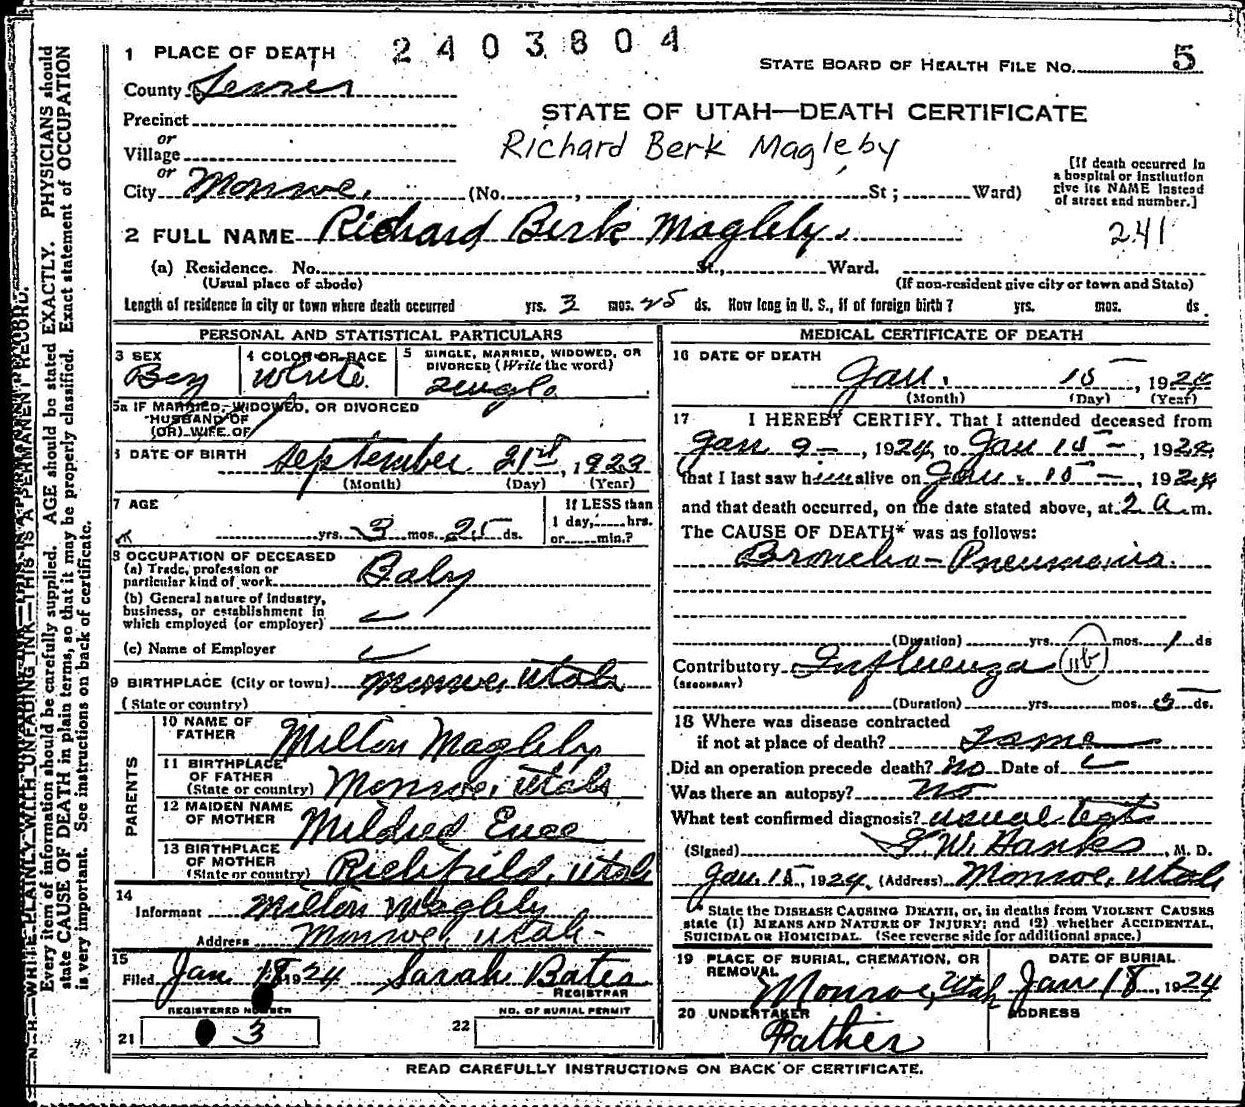 1 PLACE OF DEATH
2403804
STATE BOARD OF HEALTH FILE NO. 5
County Sevier
STATE OF UTAH—DEATH CERTIFICATE
Precinct
or
Village
Richard Berk Magleby
or
City Monroe, (No. , St ; Ward)
[If death occurred in
a hospital or institution
give its NAME instead
of street and number.]
2 FULL NAME Richard Berk Magleby.
241
(a) Residence. No. St., Ward.
(Usual place of abode)
(If non-resident give city or town and State)
Length of residence in city or town where death occurred yrs. 3 mos. 25 ds. How long in U. S., if of foreign birth? yrs. mos. ds.
PERSONAL AND STATISTICAL PARTICULARS
3 SEX
Boy
4 COLOR OR RACE
White.
5 SINGLE, MARRIED, WIDOWED, OR
DIVORCED (Write the word)
Single
5a IF MARRIED, WIDOWED, OR DIVORCED
HUSBAND OF
(OR) WIFE OF
6 DATE OF BIRTH September 21st, 1923
(Month) (Day) (Year)
7 AGE
yrs. 3 mos. 25 ds.
If LESS than
1 day, hrs.
or min.?
8 OCCUPATION OF DECEASED
(a) Trade, profession or
particular kind of work Baby
(b) General nature of industry,
business, or establishment in
which employed (or employer)
(c) Name of Employer
9 BIRTHPLACE (City or town) Monroe, Utah
(State or country)
PARENTS
10 NAME OF
FATHER Milton Magleby
11 BIRTHPLACE
OF FATHER
(State or country) Monroe, Utah
12 MAIDEN NAME
OF MOTHER Mildred
13 BIRTHPLACE
OF MOTHER
(State or country) Richfield, Utah
14
Informant Milton Magleby
Address Monroe, Utah-
15
Filed Jan 18 1924 Sarah Bates
REGISTRAR
REGISTERED NUMBER
21 3
NO. OF BURIAL PERMIT
22
MEDICAL CERTIFICATE OF DEATH
16 DATE OF DEATH
Jan. 15, 1924
(Month) (Day) (Year)
17 I HEREBY CERTIFY. That I attended deceased from
Jan 9-, 1924, to Jan 15-, 1924,
that I last saw him alive on Jan. 15-, 1924
and that death occurred, on the date stated above, at 2 a. m.
The CAUSE OF DEATH* was as follows:
Broncho-Pneumonia.
(Duration) yrs. mos. 1 ds
Contributory Influenza 11b
(SECONDARY)
(Duration) yrs. mos. 5 ds.
18 Where was disease contracted
if not at place of death?
Did an operation precede death? No Date of
Was there an autopsy? No
What test confirmed diagnosis? usual test
(Signed) G. W. Hanks, M. D.
Jan. 15, 1924. (Address) Monroe, Utah
* State the DISEASE CAUSING DEATH, or, in deaths from VIOLENT CAUSES
state (1) MEANS AND NATURE OF INJURY; and (2) whether ACCIDENTAL,
SUICIDAL OR HOMICIDAL. (See reverse side for additional space.)
19 PLACE OF BURIAL, CREMATION, OR
REMOVAL
Monroe, Utah
DATE OF BURIAL
Jan 18, 1924
20 UNDERTAKER
Father
ADDRESS
READ CAREFULLY INSTRUCTIONS ON BACK OF CERTIFICATE.
N. B.—WRITE PLAINLY WITH UNFADING INK—THIS IS A PERMANENT RECORD.
Every item of information should be carefully supplied. AGE should be stated EXACTLY. PHYSICIANS should
state CAUSE OF DEATH in plain terms, so that it may be properly classified. Exact statement of OCCUPATION
is very important. See instructions on back of certificate.